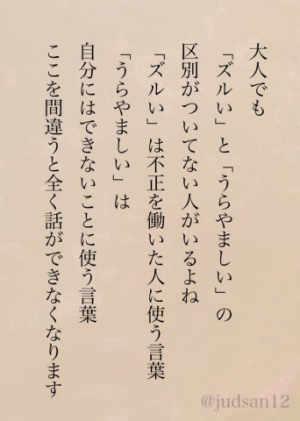 大人でも
「ズルい」と「うらやましい」の
区別がついてない人がいるよね
「ズルい」は不正を働いた人に使う言葉
「うらやましい」は
自分にはできないことに使う言葉
ここを間違うと全く話ができなくなります
@judsan12